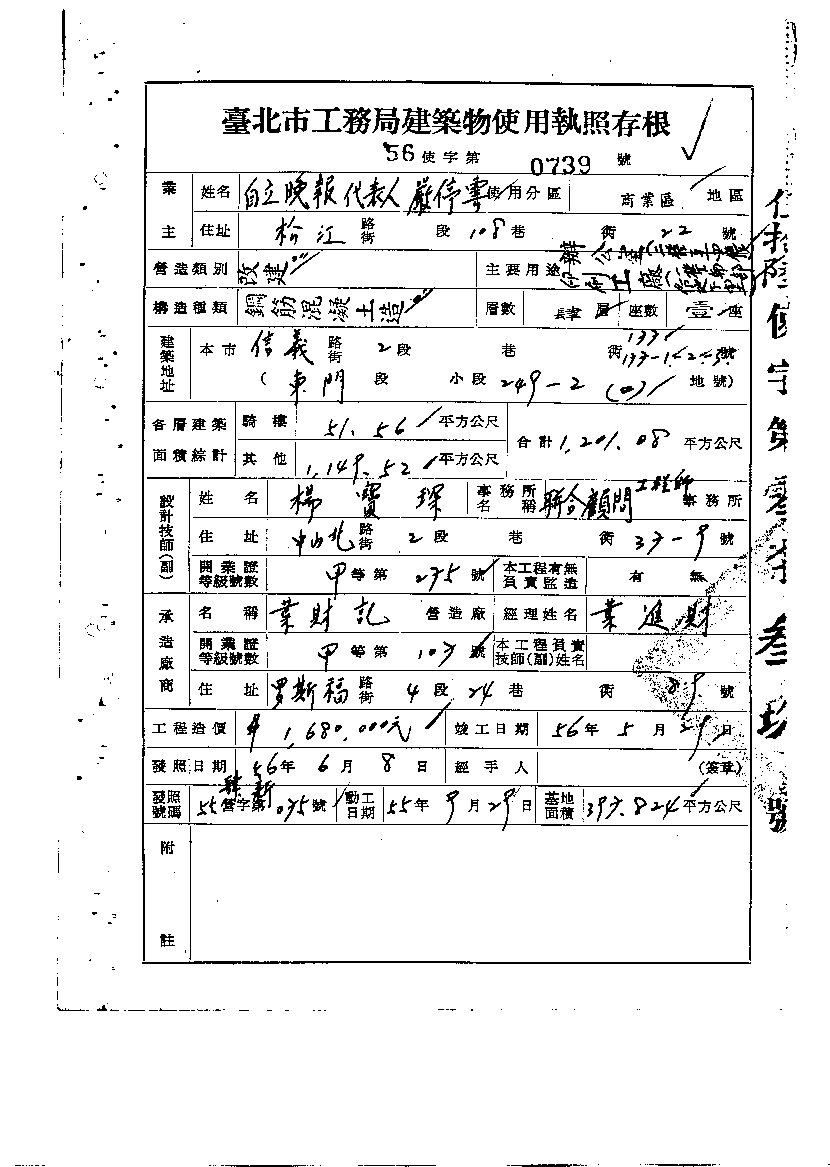 臺北市工務局建築物使用執照存根
56使字第 0739 號
業主 姓名 自立晚報代表人 嚴停雲 使用分區 商業區 地區
住址 松江 路街 段 108 巷 街 22 號
營造類別 改建 主要用途 辦公室 印刷工廠
構造種類 鋼筋混凝土造 層數 肆層 座數 壹座
建築地址 本市 信義 路街 2段 巷 街 133 號
133-1.-2.-3.
(東門 段 小段 249-2 地號)
各層建築面積綜計 騎樓 51.56 平方公尺 合計 1,201.08 平方公尺
其他 1,149.52 平方公尺
設計技師(副) 姓名 楊寶琛 事務所名稱 聯合顧問工程師事務所
住址 中山北 路街 2段 巷 街 37-9 號
開業證等級號數 甲等第 275 號 本工程有無負責監造 有 無
承造廠商 名稱 業財記 營造廠 經理姓名 業進財
開業證等級號數 甲等第 107 號 本工程負責技師(副)姓名
住址 罗斯福 路街 4段 24巷 街 89 號
工程造價 $1,680,000元 竣工日期 56年5月29日
發照日期 56年6月8日 經手人 (簽章)
發照號碼 55營字第075號 動工日期 55年9月29日 基地面積 397.824平方公尺
附註
伍拾陸使字第零柒叁玖號